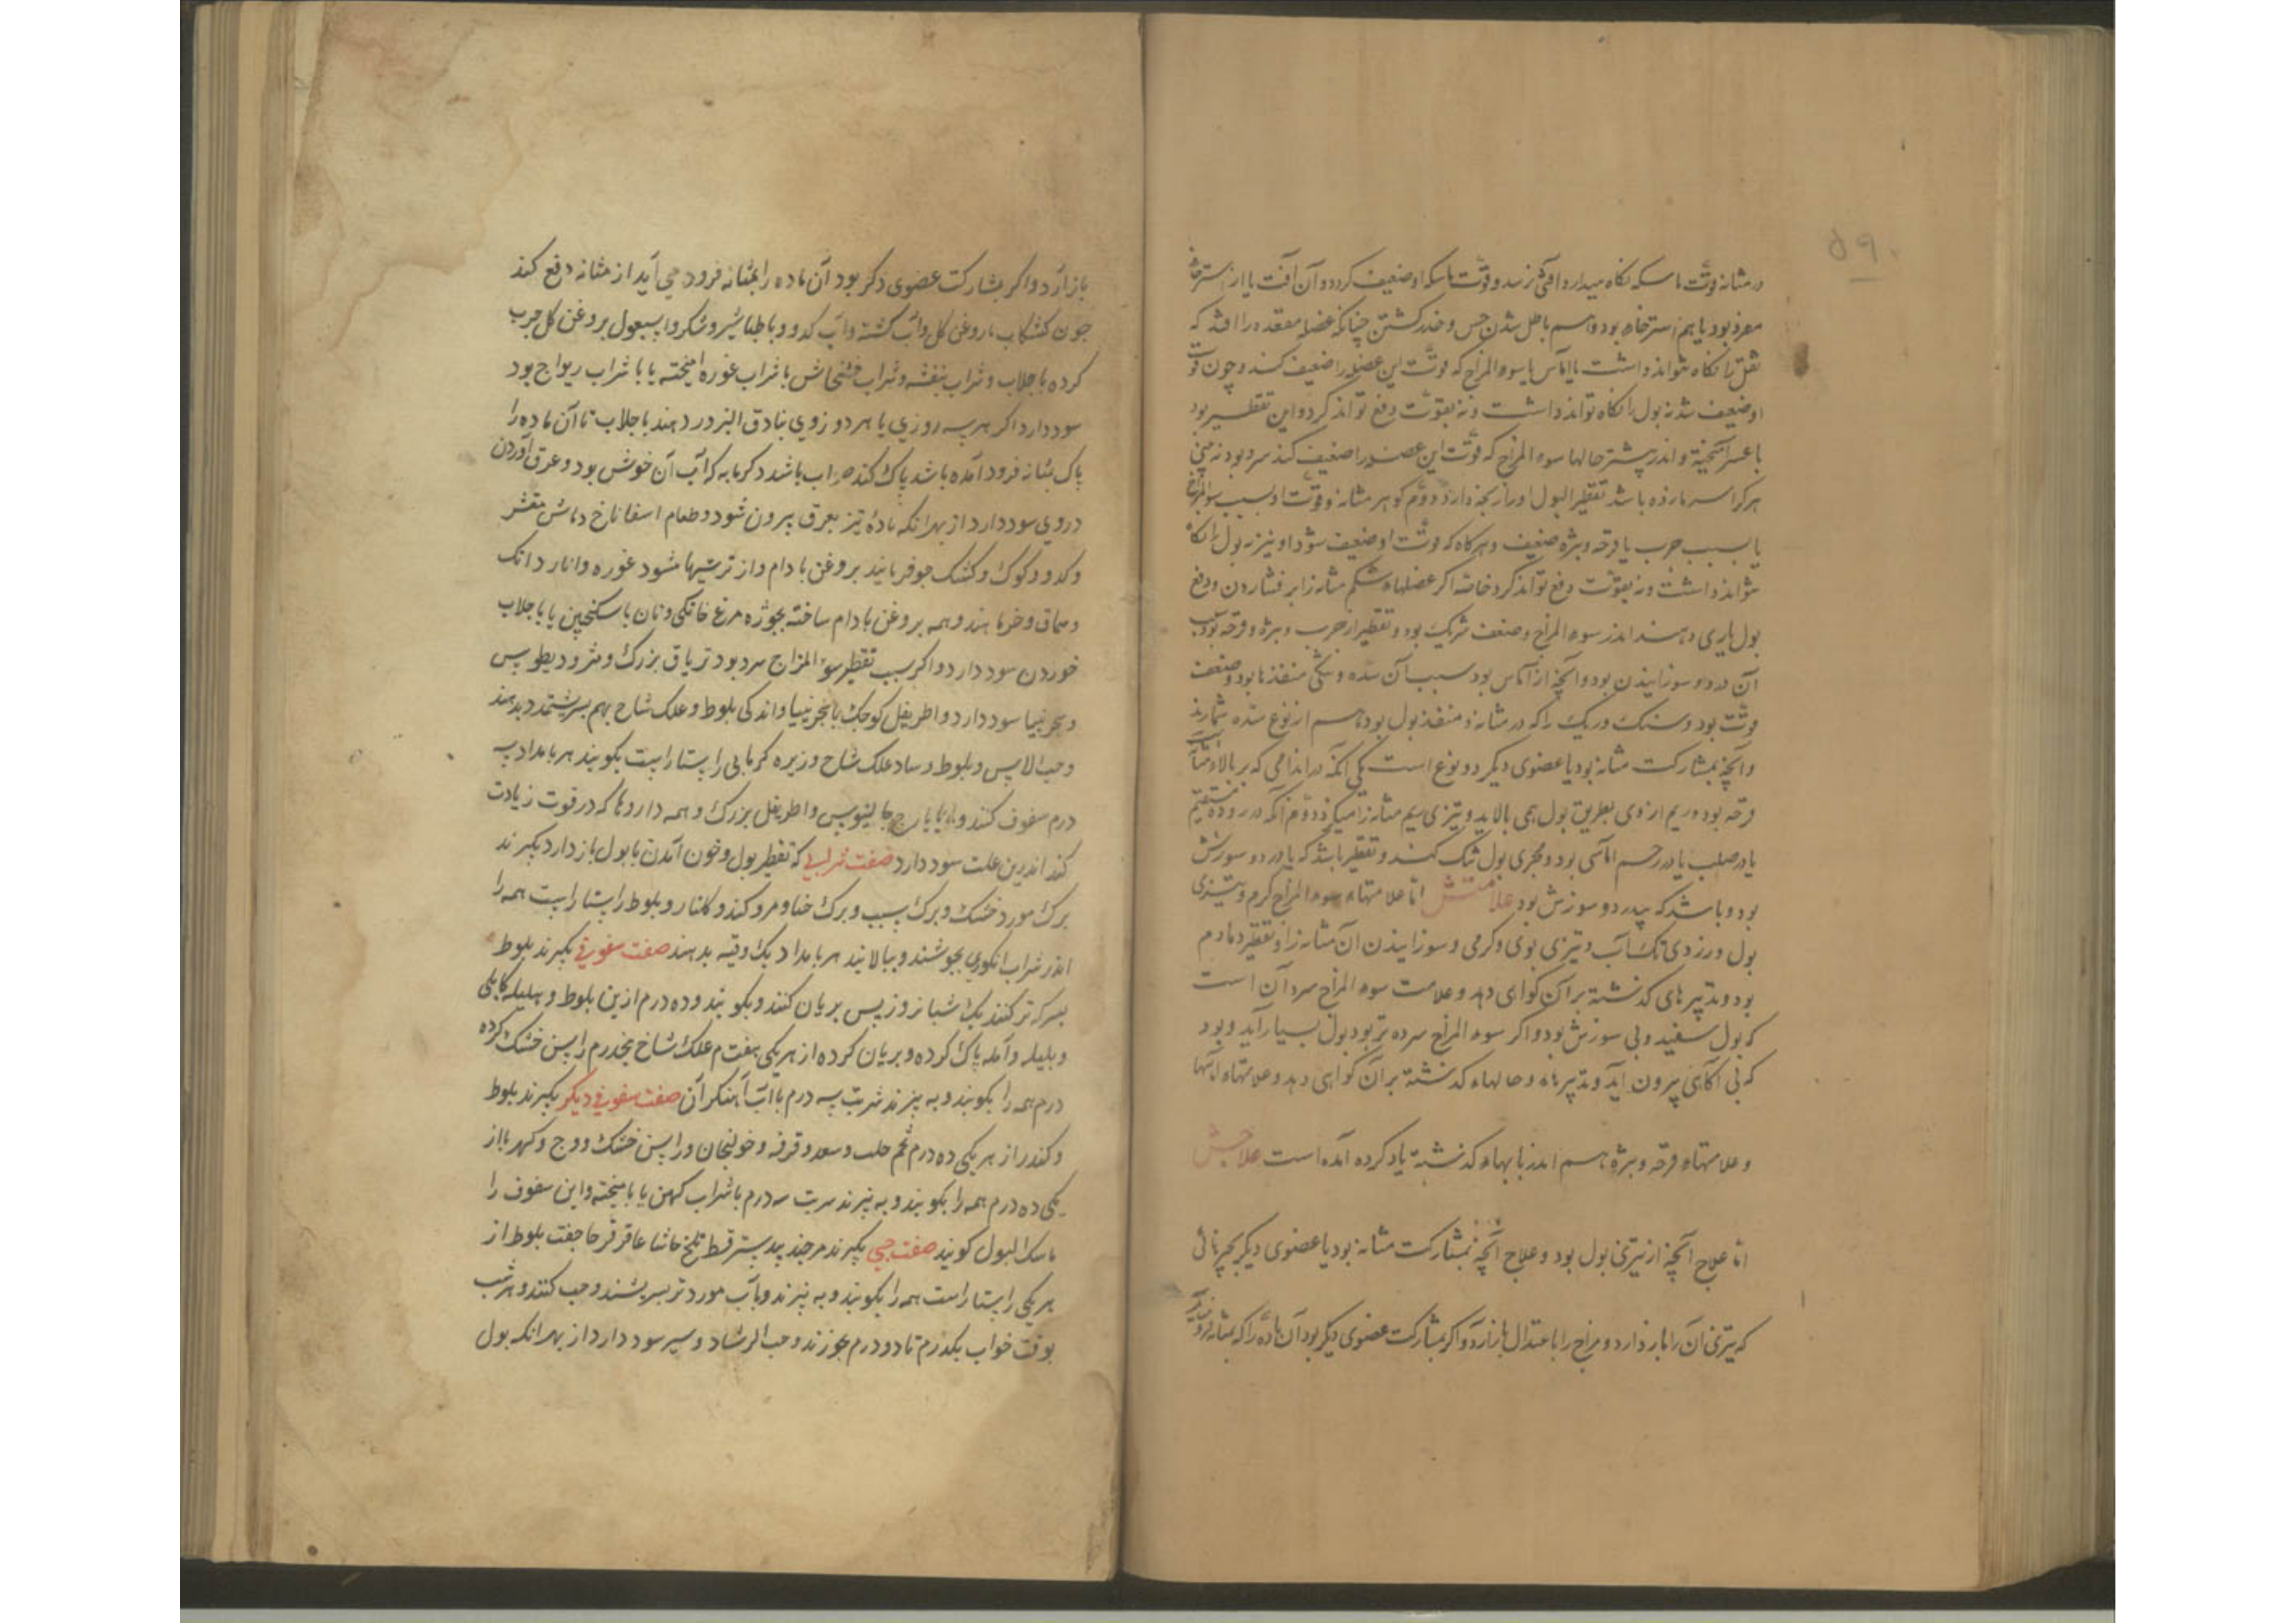 ۵۹۰
در مثانه قوّت ماسکه نگاه میدارد آفتی رسد و قوّت ماسکه او ضعیف کردد و آن آفت یا از استرخاء
مفرد بود یا هم استرخاء بود و هم باطل شدن حس و خدر کشتن چنانکه عضله مقعده را افتد که
ثفل را نکاه نتواند داشت یا آماس یا سوء المزاج که قوّت این عضله را ضعیف کند و چون قوت
او ضعیف شد نه بول را نکاه تواند داشت و نه بقوّت دفع تواند کرد و این تقطیر بود
با عسر آمیخته و اندر بیشتر حالها سوء المزاج که قوّت این عضله را ضعیف کند سرد بود نه بینی
هر کرا سرما زده باشد تقطیر البول او را رنجه دارد دوّم کوهر مثانه و قوّت او بسبب سوء المزاج
یا بسبب جرب یا قرحه و بثره ضعیف و هرکاه که قوّت او ضعیف شود او نیز نه بول را نکاه
تواند داشت و نه بقوّت دفع تواند کرد خاصّه اکر عضلهاء شکم مثانه را بر فشاردن و دفع
بول یاری دهند اندر سوء المزاج و ضعف شریک بود و تقطیر از جرب و بثره و قرحه بود
آن درد و سوزانیدن بود و آنچه از آماس بود سبب آن سده و تنکی منفذها بود و ضعف
قوّت بود و سنک و ریک را که در مثانه و منفذ بول بود هم از نوع سده شمارند
و آنچه بمشارکت مثانه بود یا عضوی دیکر دو نوع است یکی آنکه در اندامی که بر بالاء مثانه
قرحه بود و ریم از وی بطریق بول همی بالاید و تیزی ریم مثانه را میکزد دوّم آنکه در روده مستقیم
یا در صلب یا در رحم آماسی بود و مجری بول تنک کند و تقطیر باشد که با درد و سوزش
بود و باشد که بی درد و سوزش بود علامتش امّا علامتهاء سوء المزاج کرم و تیزی
بول و زردی رنک آب و تیزی بوی و کرمی و سوزانیدن آن مثانه را و تقطیر دمادم
بود و تدبیرهای کذشته بر آن کواهی دهد و علامت سوء المزاج سرد آن است
که بول سفید و بی سوزش بود و اکر سوء المزاج سرد تر بود بول بسیار آید و بود
که بی آکاهی بیرون آید و تدبیرها و حالهاء کذشته بر آن کواهی دهد و علامتهاء آماسها
و علامتهاء قرحه و بثره هم اندر بابهاء کذشته یاد کرده آمده است علاجش
امّا علاج آنچه از تیزی بول بود و علاج آنچه بمشارکت مثانه بود یا عضوی دیکر بچیزهائی
که تیزی آن را باز دارد و مزاج را باعتدال بازآرد و اکر بمشارکت عضوی دیکر بود آن ماده را که بمثانه فرود
بازآرد و اکر بمشارکت عضوی دکر بود آن ماده را بمثانه فرود می آید از مثانه دفع کند
چون کشکاب با روغن کل و آب کشنه و آب کدو و با طباشیر و شکر و اسبغول بروغن کل چرب
کرده با جلاب و شراب بنفشه و شراب خشخاش با شراب غوره امیخته یا با شراب ریواج بود
سود دارد اکر هر سه روزی یا هر دو روزی بنادق البزور دهند با جلاب تا آن ماده را
پاک بمثانه فرود آمده باشد پاک کند صواب باشد و کرمابه که آب آن خوش بود و عرق آوردن
در وی سود دارد از بهر انکه مادهٔ تیز بعرق بیرون شود و طعام اسفاناخ و ماش مقشر
و کدو و کوک و کشک جو فرمایند بروغن بادام و از ترشیها مشود غوره و انار دانک
و سماق و خرما هندو همه بروغن بادام ساخته بجوژه مرغ خانکی و نان با سکنجبین یا با جلاب
خوردن سود دارد و اکر سبب تقطیر سوء المزاج سرد بود تریاق بزرک و مثرودیطوس
و سجزنیا سود دارد و اطریفل کوچک با سجزنیا و اندکی بلوط و علک شاخ بهم بسریشند و بدهند
و حب الاس و بلوط و ساد علک شاخ و زیره کرمانی راستاراست بکوبند هر بامداد سه
درم سفوف کنند و با یارج جالینوس و اطریفل بزرک و همه داروها که در قوت زیادت
کند اندرین علت سود دارد صفت شرابی که تقطیر بول و خون آمدن با بول باز دارد بکیرند
برک مورد خشک و برک سیب و برک حنا و مرو کندر و کلنار و بلوط راستاراست همه را
اندر شراب انکوری بجوشند و ببالایند هر بامداد یک وقیه بدهند صفت سفوفی بکیرند بلوط
بسرکه تر کنند یک شبانروز پس بریان کنند و بکوبند و ده درم ازین بلوط و هلیله کابلی
و بلیله و آمله پاک کرده و بریان کرده از هر یکی هفت م علک شاخ پنجدرم راسن خشک کرده
درم همه را بکوبند و به پزند شربت سه درم با آب آهنکران صفت سفوفی دیکر بکیرند بلوط
و کندر از هر یکی ده درم تخم حلب و سعد و قرفه و خولنجان و راسن خشک و وج و کهربا از
یکی ده درم همه را بکوبند و به پزند شربت سه درم با شراب کهن یا با میخته و این سفوف را
ماسک البول کویند صفت حبی بکیرند جند بیدستر قسط تلخ حاشا عاقرقرحا جفت بلوط از
هر یکی راستاراست همه را بکوبند و به پزند و بآب مورد تر بسریشند و حب کنند و هر شب
بوقت خواب یکدرم تا دو درم بخورند و حب الرشاد و سیر سود دارد از بهر انکه بول